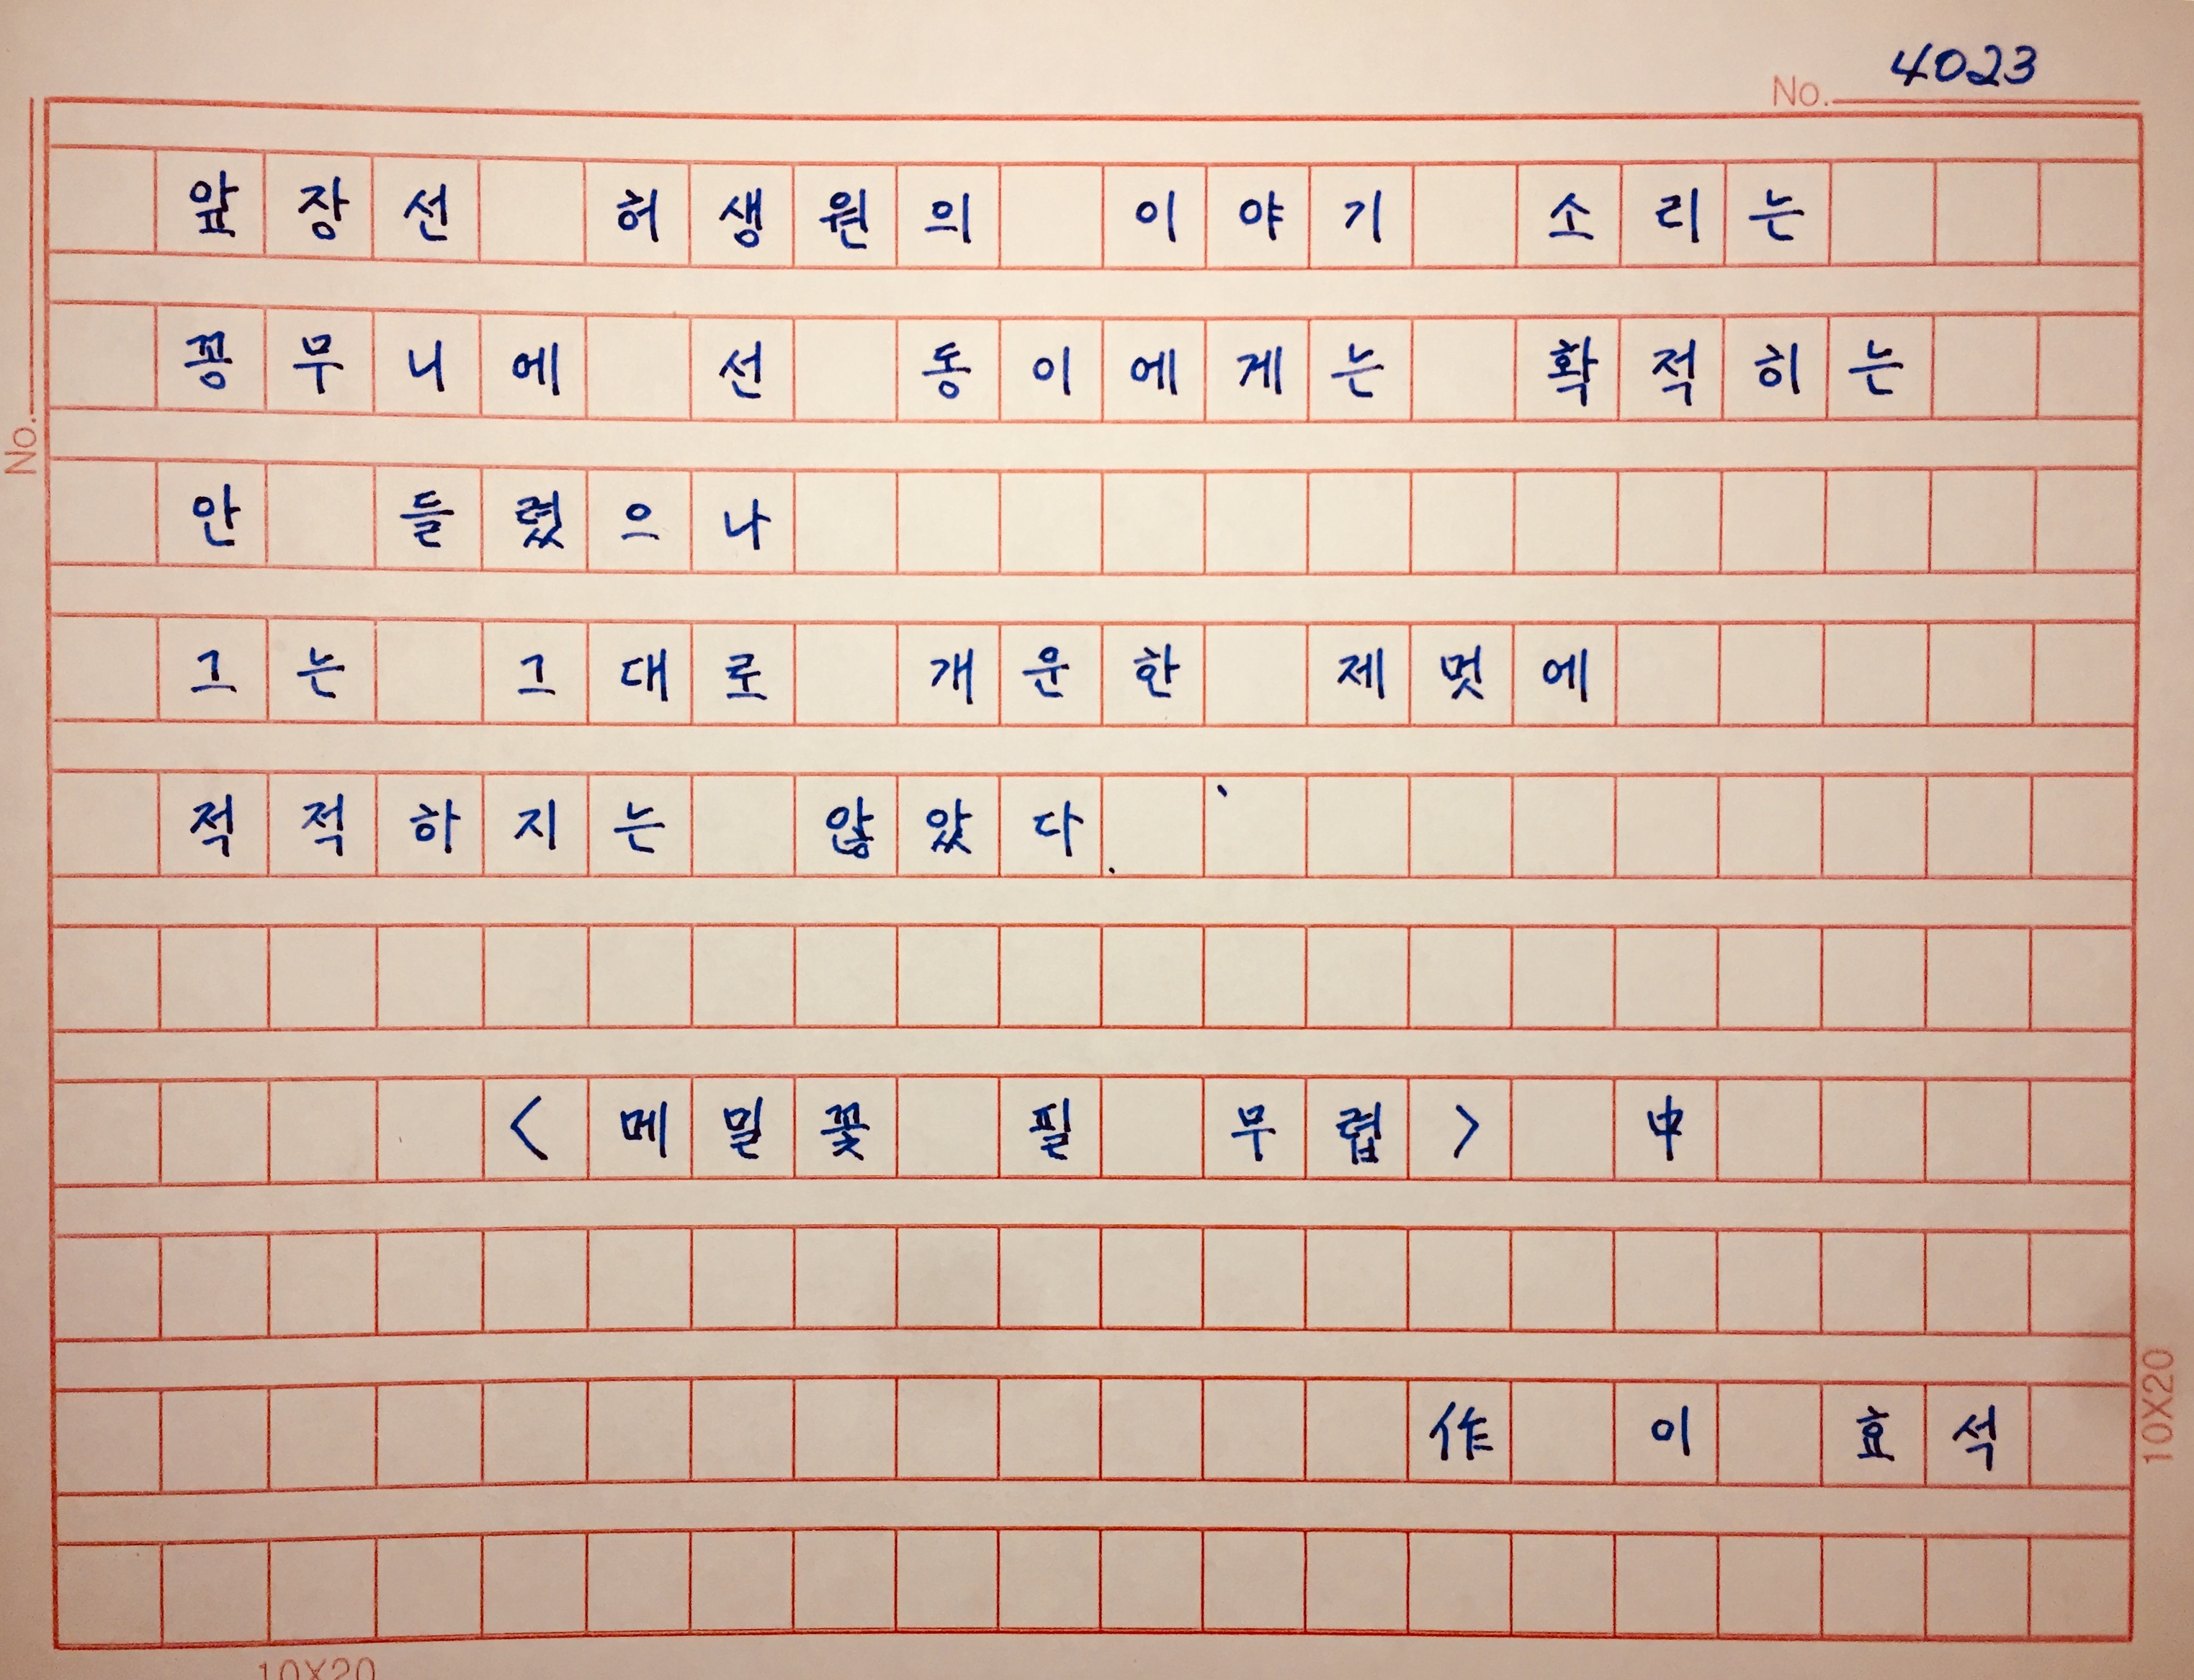 4023
No.
앞장선 허생원의 이야기 소리는
꽁무니에 선 동이에게는 확적히는
안 들렸으나
그는 그대로 개운한 제멋에
적적하지는 않았다.
<메밀꽃 필 무렵> 中
作 이 효석
No.
10X20
10X20